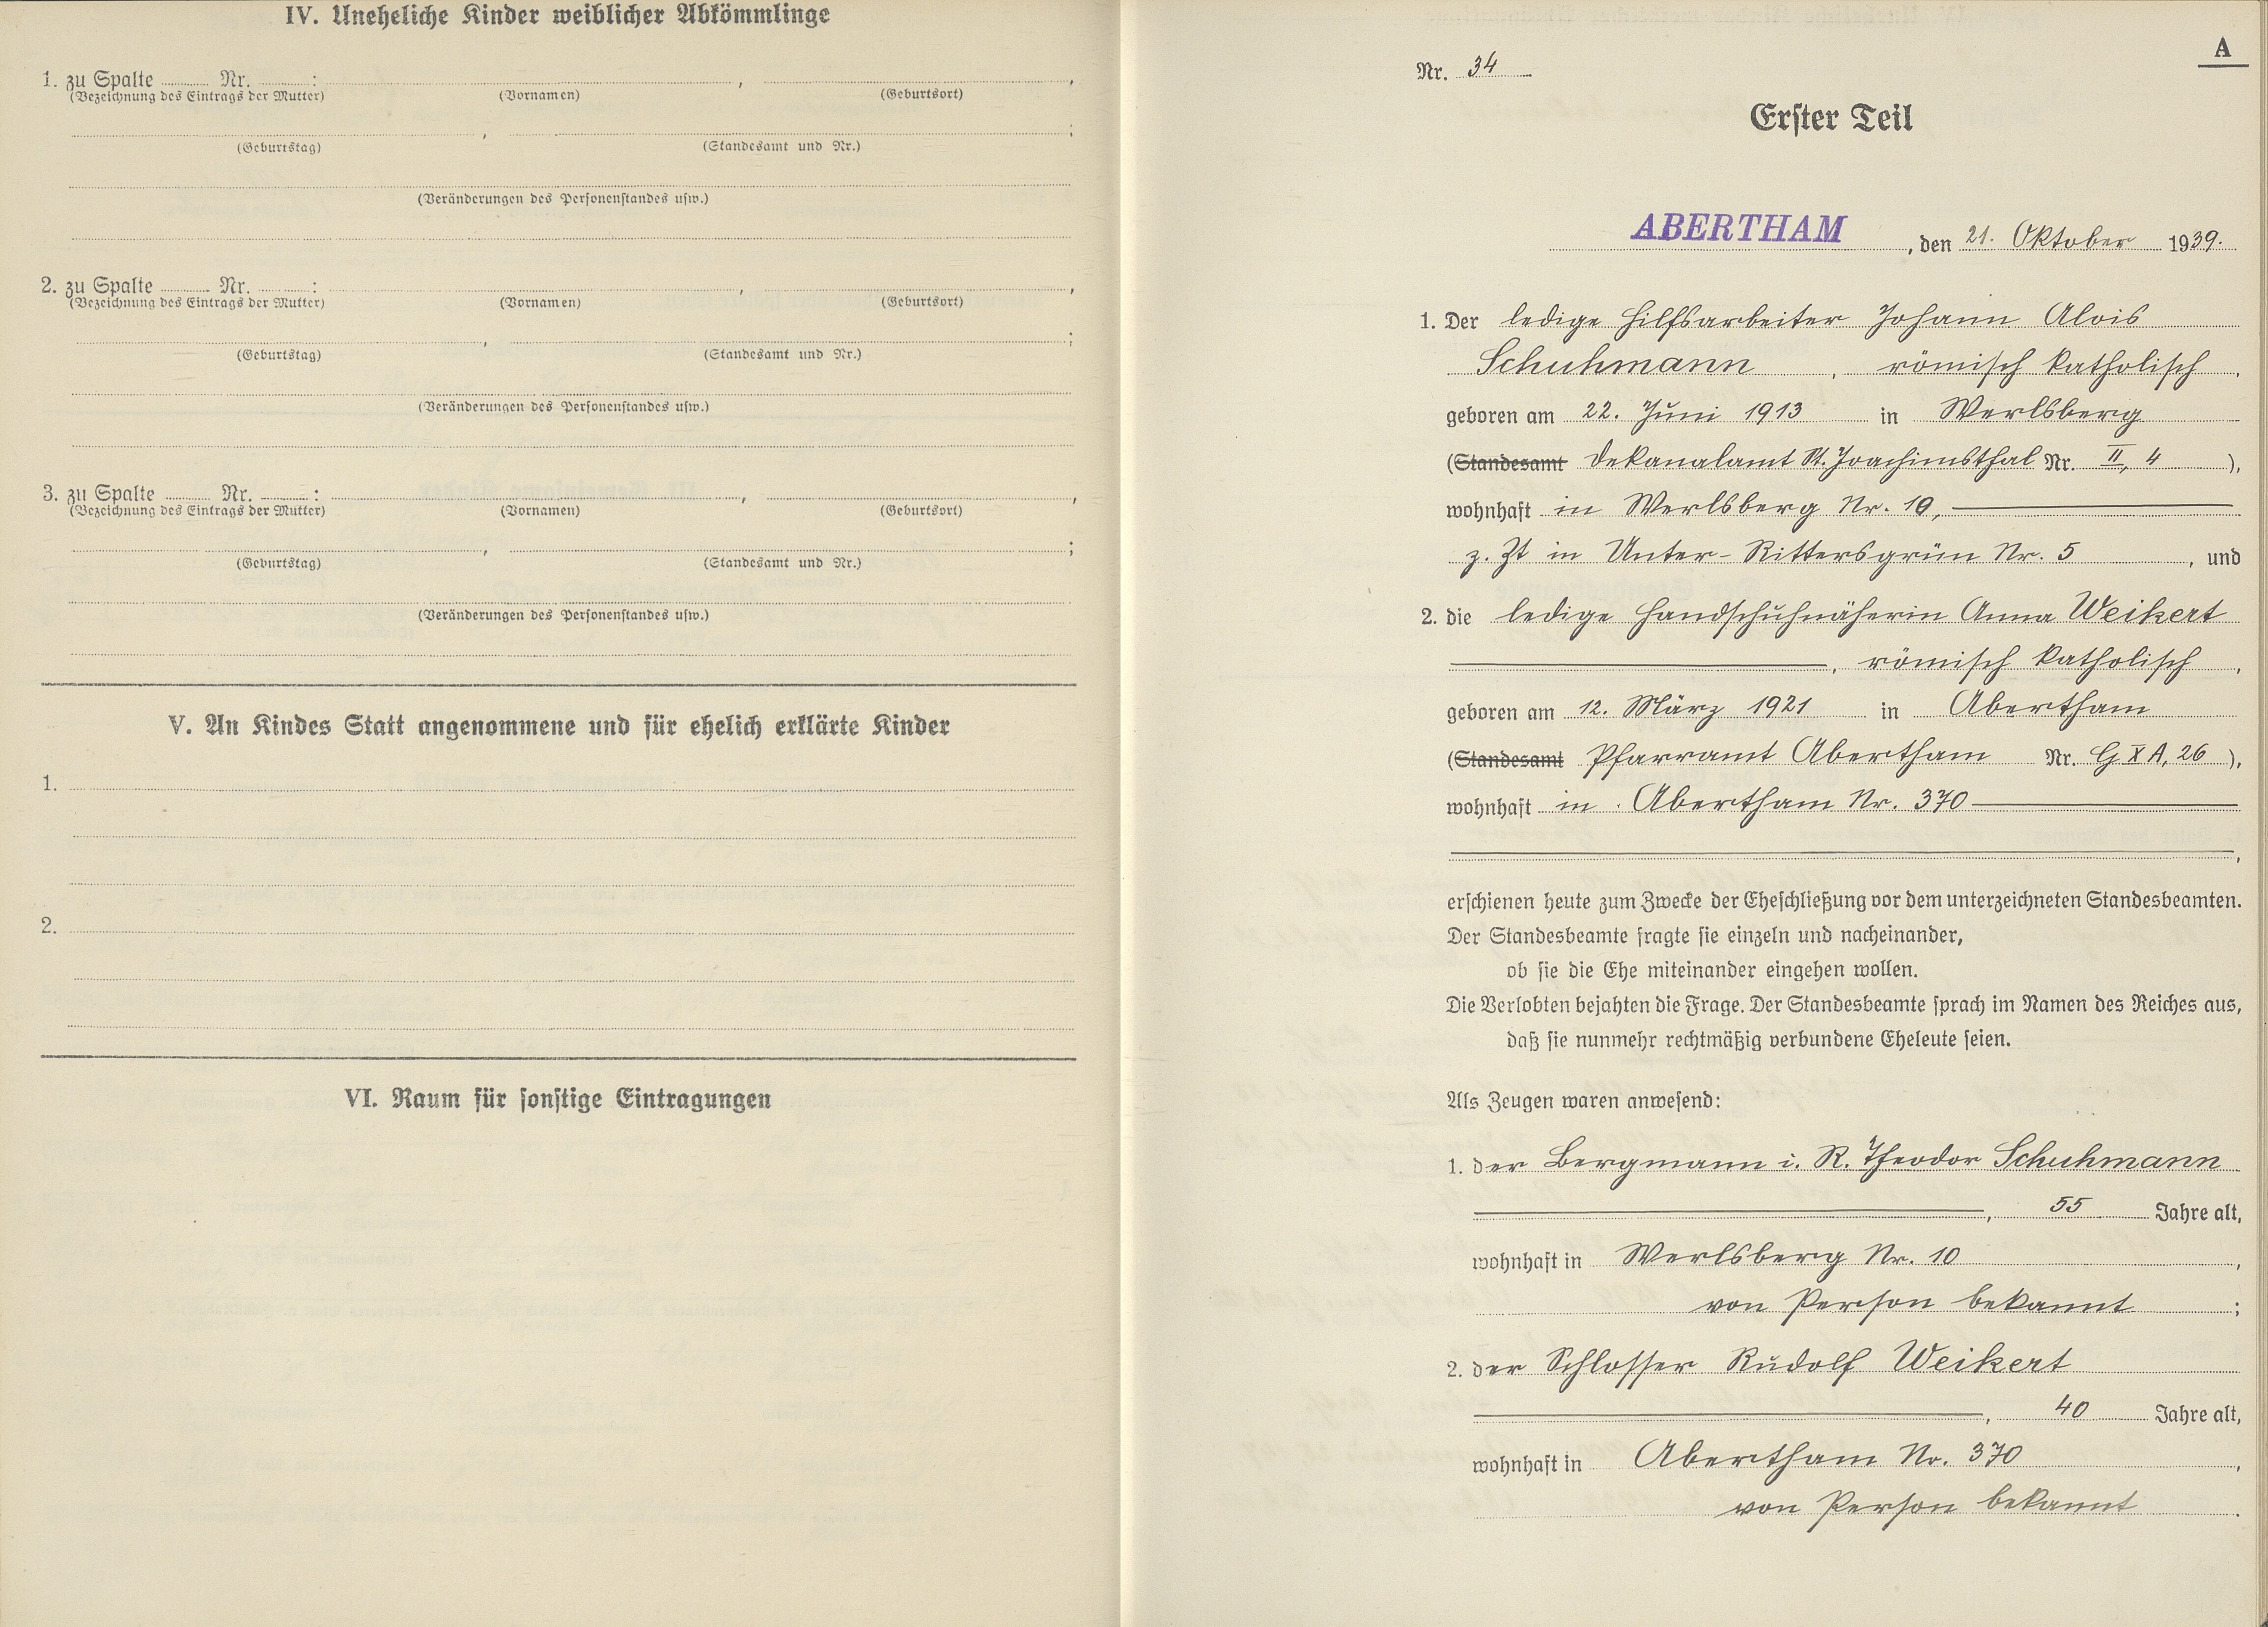 IV. Uneheliche Kinder weiblicher Abkömmlinge
1. zu Spalte ........ Nr. ........ : , ,
(Bezeichnung des Eintrags der Mutter) (Vornamen) (Geburtsort)
, ;
(Geburtstag) (Standesamt und Nr.)
(Veränderungen des Personenstandes usw.)
2. zu Spalte ........ Nr. ........ : , ,
(Bezeichnung des Eintrags der Mutter) (Vornamen) (Geburtsort)
, ;
(Geburtstag) (Standesamt und Nr.)
(Veränderungen des Personenstandes usw.)
3. zu Spalte ........ Nr. ........ : , ,
(Bezeichnung des Eintrags der Mutter) (Vornamen) (Geburtsort)
, ;
(Geburtstag) (Standesamt und Nr.)
(Veränderungen des Personenstandes usw.)
V. An Kindes Statt angenommene und für ehelich erklärte Kinder
1.
2.
VI. Raum für sonstige Eintragungen
A
Nr. 34
Erster Teil
ABERTHAM, den 21. Oktober 1939.
1. Der ledige Hilfsarbeiter Johann Alois
Schuhmann, römisch katholisch,
geboren am 22. Juni 1913 in Werlsberg
(Standesamt Dekanalamt St. Joachimsthal Nr. II, 4),
wohnhaft in Werlsberg Nr. 10,
z. Zt in Unter-Rittersgrün Nr. 5, und
2. die ledige Handschuhnäherin Anna Weikert
, römisch katholisch,
geboren am 12. März 1921 in Abertham
(Standesamt Pfarramt Abertham Nr. G X A, 26),
wohnhaft in Abertham Nr. 370
,
erschienen heute zum Zwecke der Eheschließung vor dem unterzeichneten Standesbeamten.
Der Standesbeamte fragte sie einzeln und nacheinander,
ob sie die Ehe miteinander eingehen wollen.
Die Verlobten bejahten die Frage. Der Standesbeamte sprach im Namen des Reiches aus,
daß sie nunmehr rechtmäßig verbundene Eheleute seien.
Als Zeugen waren anwesend:
1. der Bergmann i. R. Theodor Schuhmann
, 55 Jahre alt,
wohnhaft in Werlsberg Nr. 10,
von Person bekannt;
2. der Schlosser Rudolf Weikert
, 40 Jahre alt,
wohnhaft in Abertham Nr. 370,
von Person bekannt.